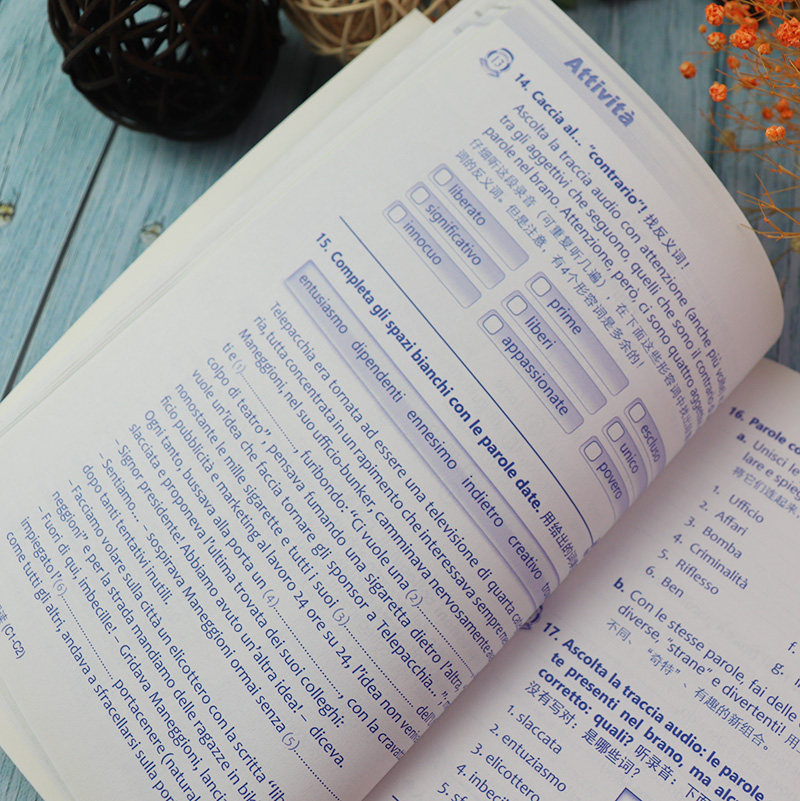 Attività
13
14. Caccia al... "contrario"! 找反义词!
Ascolta la traccia audio con attenzione (anche più volte
tra gli aggettivi che seguono, quelli che sono il contrario
parole nel brano. Attenzione, però, ci sono quattro
仔细听这段录音(可重复听几遍),在下面这些形容词中找
词的反义词。但是注意,有4个形容词是多余的!
liberato
prime
escluso
significativo
liberi
unico
innocuo
appassionate
povero
15. Completa gli spazi bianchi con le parole date. 用给出的词
entusiasmo dipendenti ennesimo indietro creativo
Telepacchia era tornata ad essere una televisione di quarta
ria, tutta concentrata in un rapimento che interessava sempre
Maneggioni, nel suo ufficio-bunker, camminava nervosamente
ti e (1).................., furibondo: "Ci vuole una (2)..................
colpo di teatro", pensava fumando una sigaretta dietro l'altra,
vuole un'idea che faccia tornare gli sponsor a Telepacchia..."
nonostante le mille sigarette e tutti i suoi (3)..................
ficio pubblicità e marketing al lavoro 24 ore su 24, l'idea non
Ogni tanto, bussava alla porta un (4).................., con la
slacciata e proponeva l'ultima trovata dei suoi colleghi:
– Signor presidente! Abbiamo avuto un'altra idea! – diceva.
– Sentiamo... – sospirava Maneggioni ormai senza (5)..................
dopo tanti tentativi inutili.
– Facciamo volare sulla città un elicottero con la scritta
neggioni" e per la strada mandiamo delle ragazze in
– Fuori di qui, imbecille! – Gridava Maneggioni,
impiegato l'(6).................. portacenere
come tutti gli altri, andava a sfracellarsi sulla
(C1-C2)
16. Parole
a. Unisci le
lare e
将它们连起来
1. Ufficio
2. Affari
3. Bomba
4. Criminalità
5. Riflesso
6. Ben
f.
g.
b. Con le stesse parole, fai delle
diverse, "strane" e divertenti!
不同、“奇特”、有趣的新组合。
17. Ascolta la traccia audio: le parole
te presenti nel brano, ma
corretto: quali? 听录音:下
没有写对:是哪些词?
1. slaccata
2. entuziasmo
3. elicottero